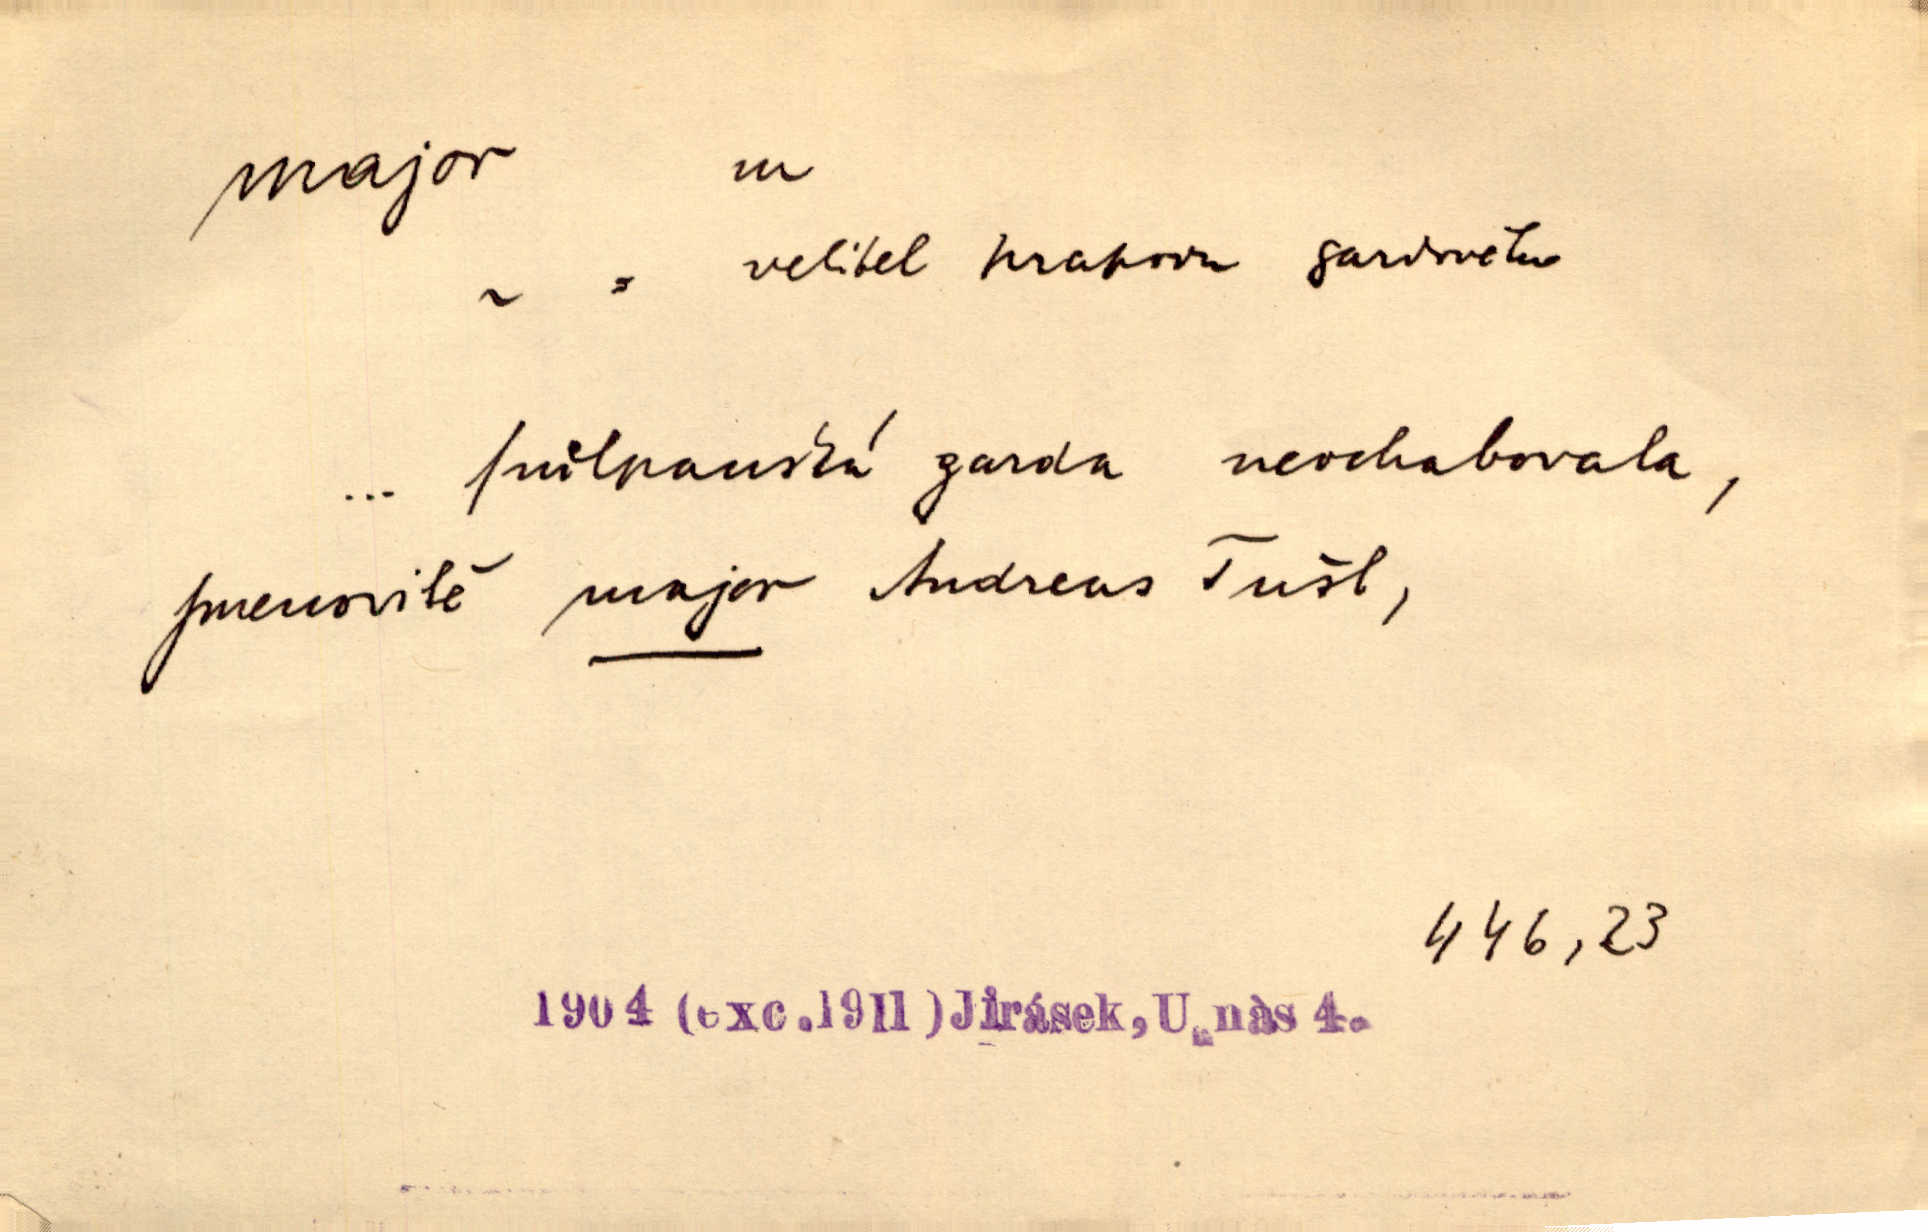 major m
~ = velitel praporu gardového
... půlpanská garda neochabovala,
jmenovitě major Andreas Tušl,
446,23
1904 (exc.1911) Jirásek, U nàs 4.